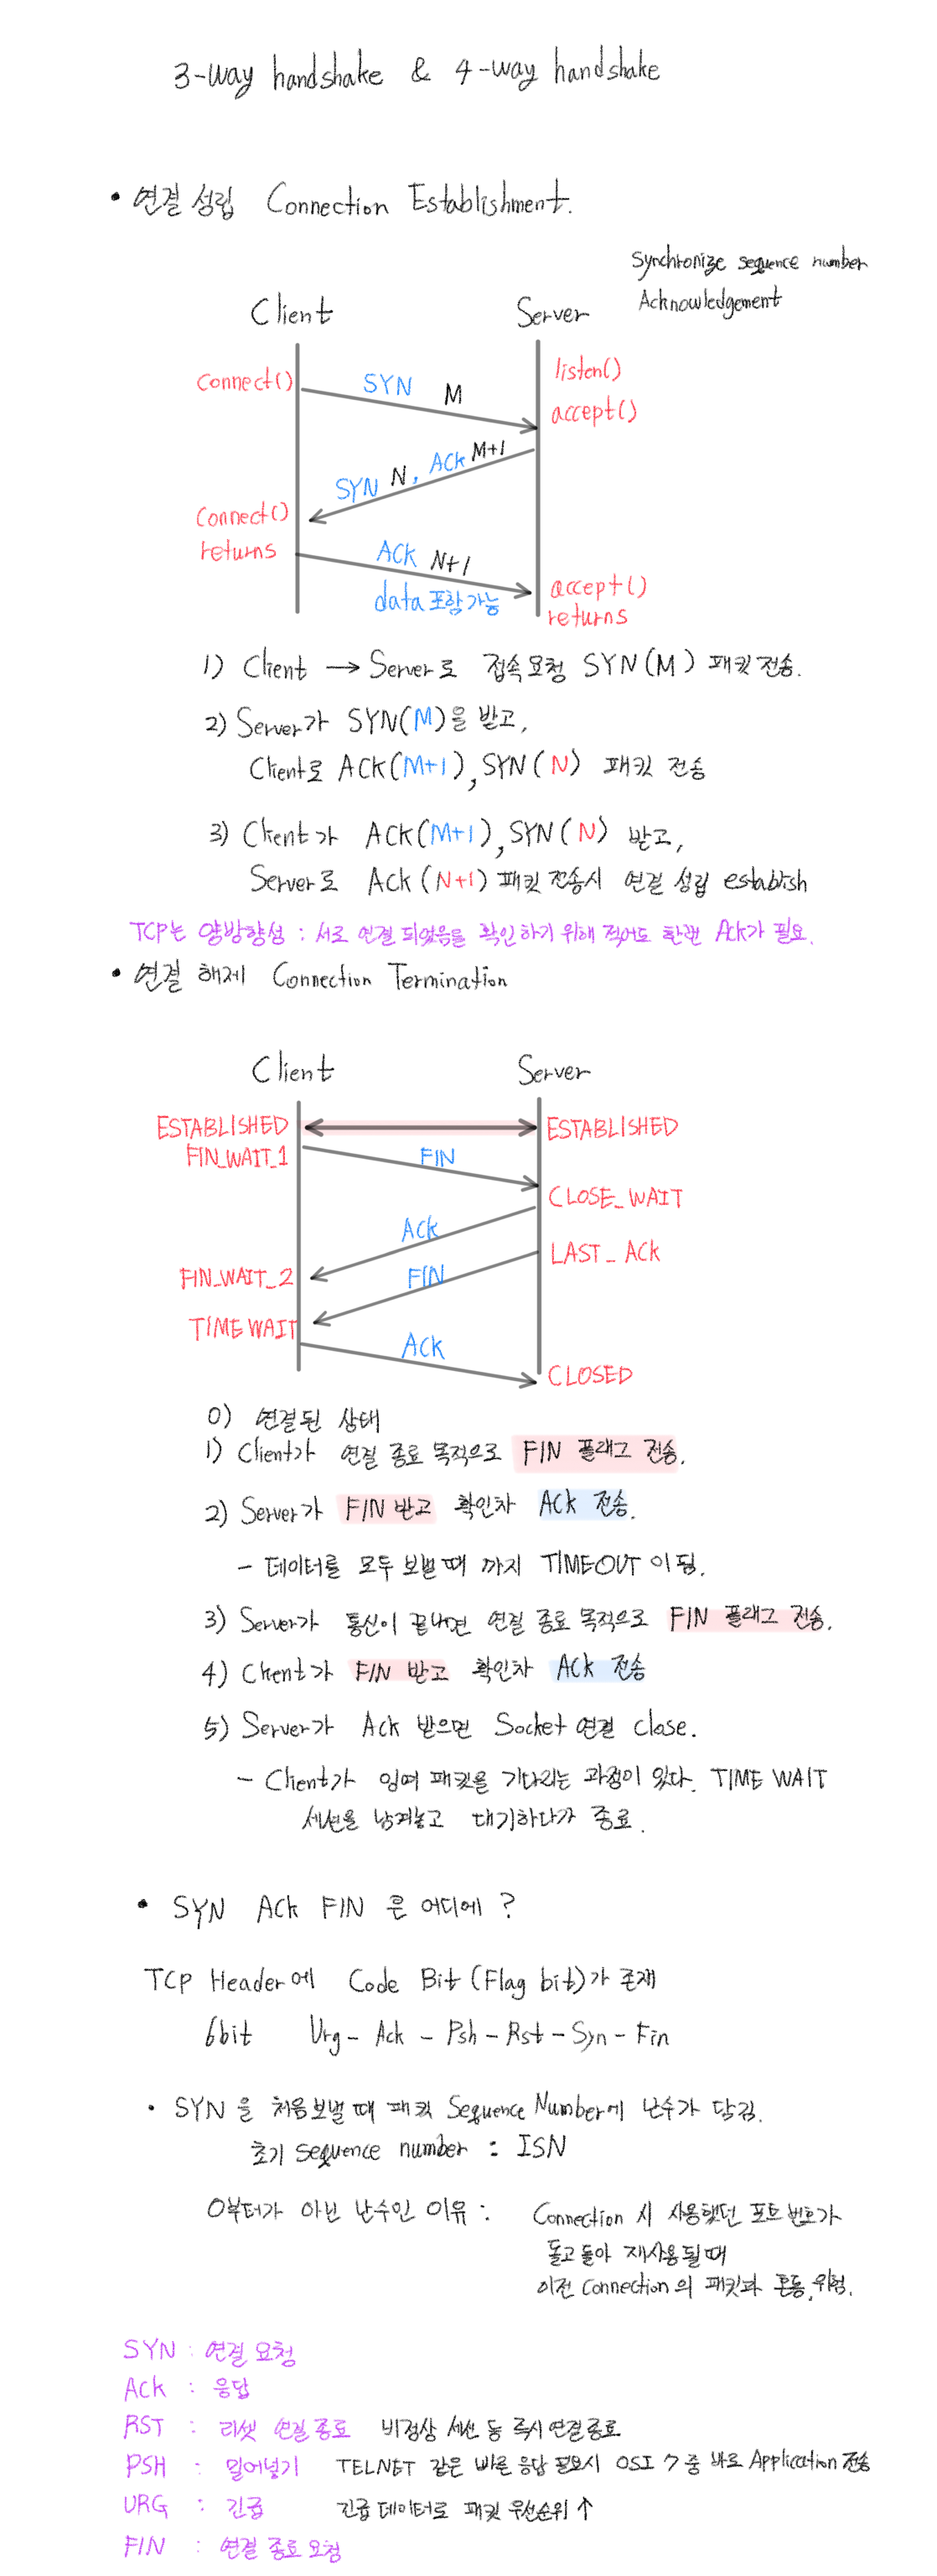 3-way handshake & 4-way handshake
• 연결 성립 Connection Establishment.
Synchronize sequence number
Acknowledgement
Client Server
connect() SYN M listen()
accept()
SYN N, Ack M+1
connect()
returns
ACK N+1
data 포함 가능
accept()
returns
1) Client → Server로 접속 요청 SYN(M) 패킷 전송.
2) Server가 SYN(M)을 받고,
Client로 ACK(M+1), SYN(N) 패킷 전송
3) Client가 ACK(M+1), SYN(N) 받고,
Server로 ACK(N+1) 패킷 전송시 연결 성립 establish
TCP는 양방향성 : 서로 연결 되었음을 확인하기 위해 적어도 한번 Ack가 필요.
• 연결 해제 Connection Termination
Client Server
ESTABLISHED ESTABLISHED
FIN_WAIT_1 FIN
CLOSE_WAIT
Ack
LAST_ACK
FIN_WAIT_2 FIN
TIME WAIT
ACK
CLOSED
0) 연결된 상태
1) Client가 연결 종료 목적으로 FIN 플래그 전송.
2) Server가 FIN 받고 확인차 Ack 전송.
- 데이터를 모두 보낼 때 까지 TIMEOUT 이 됨.
3) Server가 통신이 끝나면 연결 종료 목적으로 FIN 플래그 전송.
4) Client가 FIN 받고 확인차 Ack 전송
5) Server가 Ack 받으면 Socket 연결 close.
- Client가 잉여 패킷을 기다리는 과정이 있다. TIME WAIT
세션을 남겨놓고 대기하다가 종료.
• SYN Ack FIN 은 어디에 ?
TCP Header에 Code Bit (Flag bit)가 존재
6bit Urg - Ack - Psh - Rst - Syn - Fin
• SYN을 처음 보낼 때 패킷 Sequence Number에 난수가 담김.
초기 sequence number : ISN
0부터가 아닌 난수인 이유 : Connection 시 사용했던 포트 번호가
돌고 돌아 재사용 될 때
이전 Connection의 패킷과 혼동, 위험.
SYN : 연결 요청
Ack : 응답
RST : 리셋 연결 종료 비정상 세션 등 즉시 연결 종료
PSH : 밀어넣기 TELNET 같은 빠른 응답 필요시 OSI 7 중 바로 Application 전송
URG : 긴급 긴급 데이터로 패킷 우선순위 ↑
FIN : 연결 종료 요청